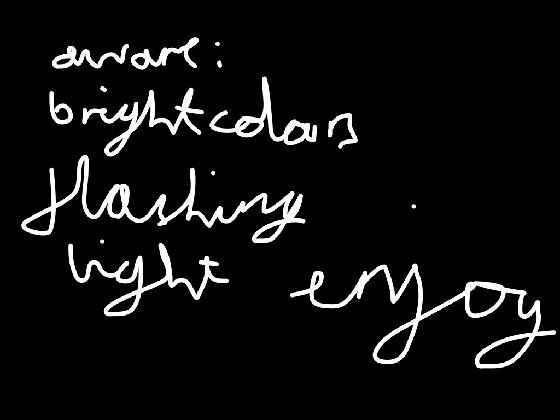 aware:
bright colars
flashing
light
enjoy